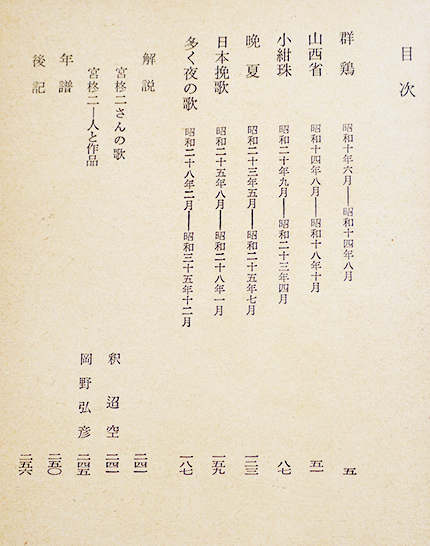 目次
群鶏 昭和十年六月――昭和十四年八月 五
山西省 昭和十四年八月――昭和十八年十月 五一
小紺珠 昭和二十年九月――昭和二十三年四月 八七
晩夏 昭和二十三年五月――昭和二十五年七月 一二三
日本挽歌 昭和二十五年八月――昭和二十八年一月 一五九
多く夜の歌 昭和二十八年二月――昭和三十五年十二月 一八七
解説 二四一
宮柊二さんの歌 釈迢空 二四一
宮柊二―人と作品 岡野弘彦 二四五
年譜 二五〇
後記 二五六